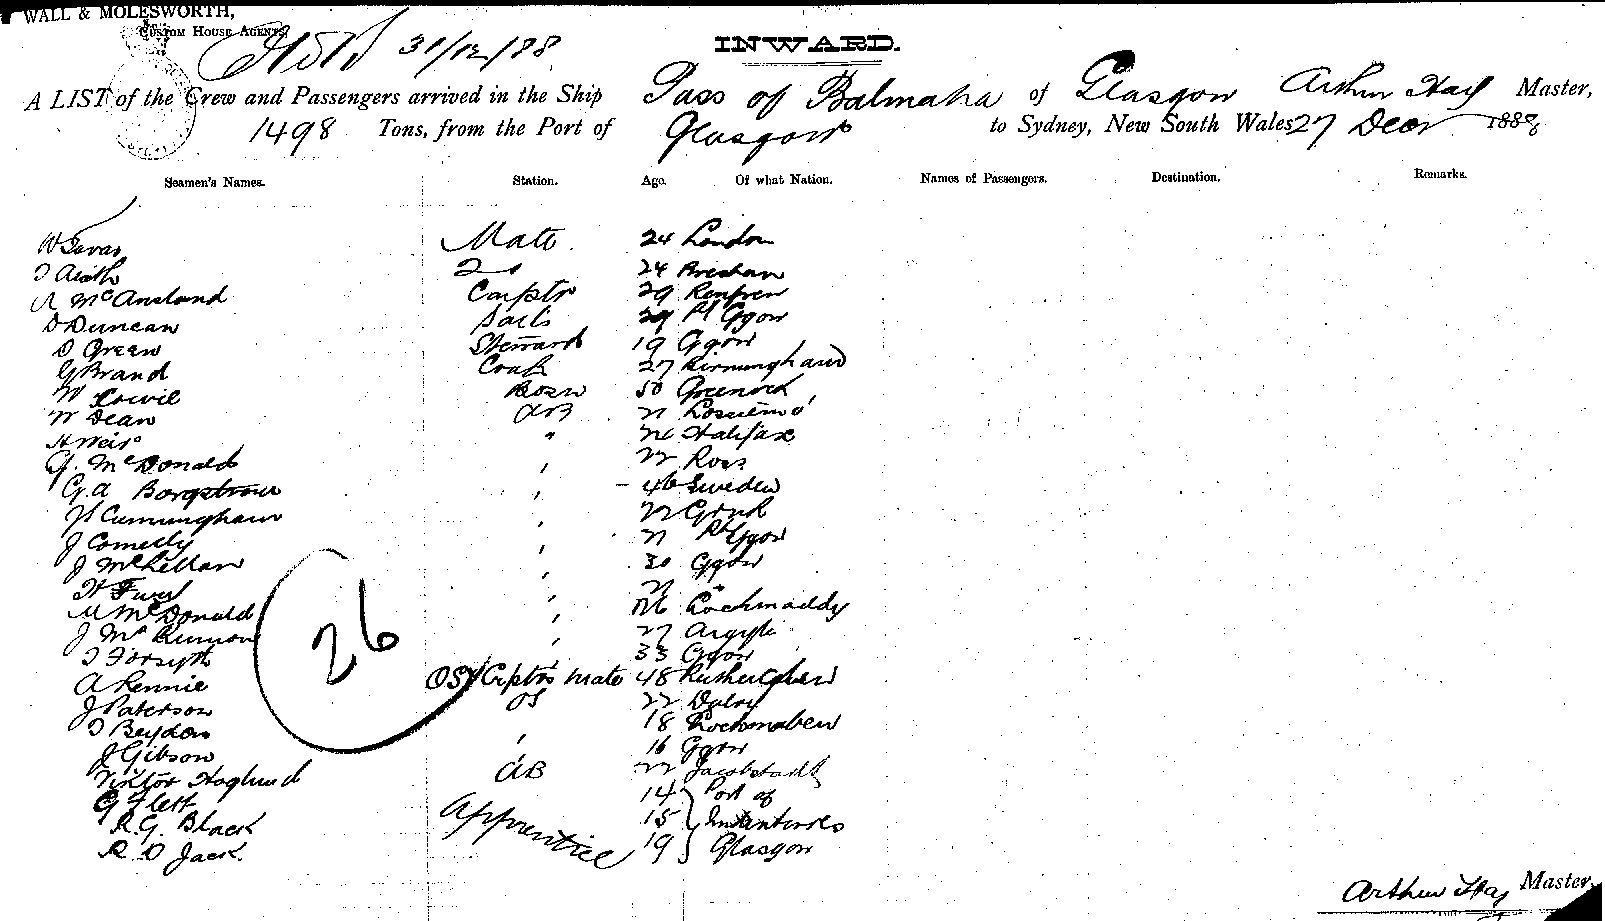 WALL & MOLESWORTH,
CUSTOM HOUSE AGENTS.
31/12/88
INWARD.
A LIST of the Crew and Passengers arrived in the Ship Pass of Balmaha of Glasgow Arthur Hay Master,
1498 Tons, from the Port of Glasgow to Sydney, New South Wales 27 Decr 1888
Seamen's Names. Station. Age. Of what Nation. Names of Passengers. Destination. Remarks.
Mate 24 London
24
A McAusland Carptr 29 Renfrew
D Duncan Sails 29 Pt Ggow
D Green Steward 19 Ggow
G Brand Cook 27 Birmingham
W Bosn 50 Greenock
W Dean AB 21 Lossiemo
H Weir " 24 Halifax
G. McDonald " 22 Ross
G.A Borgstrom " 46 Sweden
Cunningham " 22 Grnk
J Connelly " 21 Pt Ggow
J McLellan " 30 Ggow
"
M McDonald " 26 Lochmaddy
J McKinnon " 27 Argyle
J Forsyth 33 Ggow
A Rennie OS & Crptrs mate 48 Rutherglen
J Paterson OS 22 Dalry
18 Lochmaben
J Gibson " 16 Ggow
Viktor Haglund AB 22 Jacobstadt
G Flett 14 Port of
R.G. Black Apprentice 15 Indentures
R D Jack 19 Glasgow
26
Arthur Hay Master.